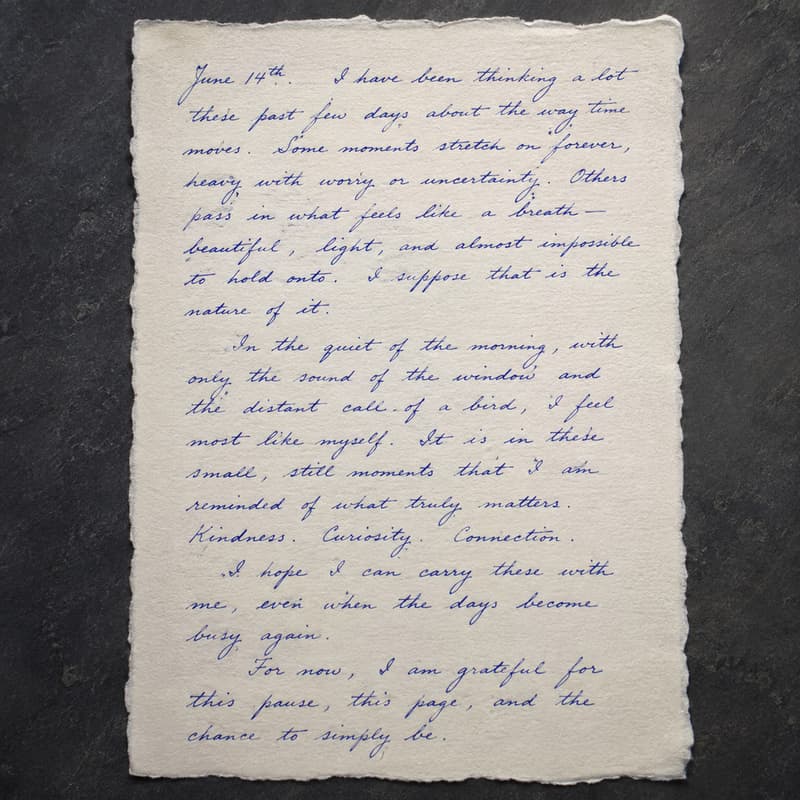 June 14th. I have been thinking a lot
these past few days about the way time
moves. Some moments stretch on forever,
heavy with worry or uncertainty. Others
pass in what feels like a breath—
beautiful, light, and almost impossible
to hold onto. I suppose that is the
nature of it.
In the quiet of the morning, with
only the sound of the window and
the distant call of a bird, I feel
most like myself. It is in these
small, still moments that I am
reminded of what truly matters.
Kindness. Curiosity. Connection.
I hope I can carry these with
me, even when the days become
busy again.
For now, I am grateful for
this pause, this page, and the
chance to simply be.